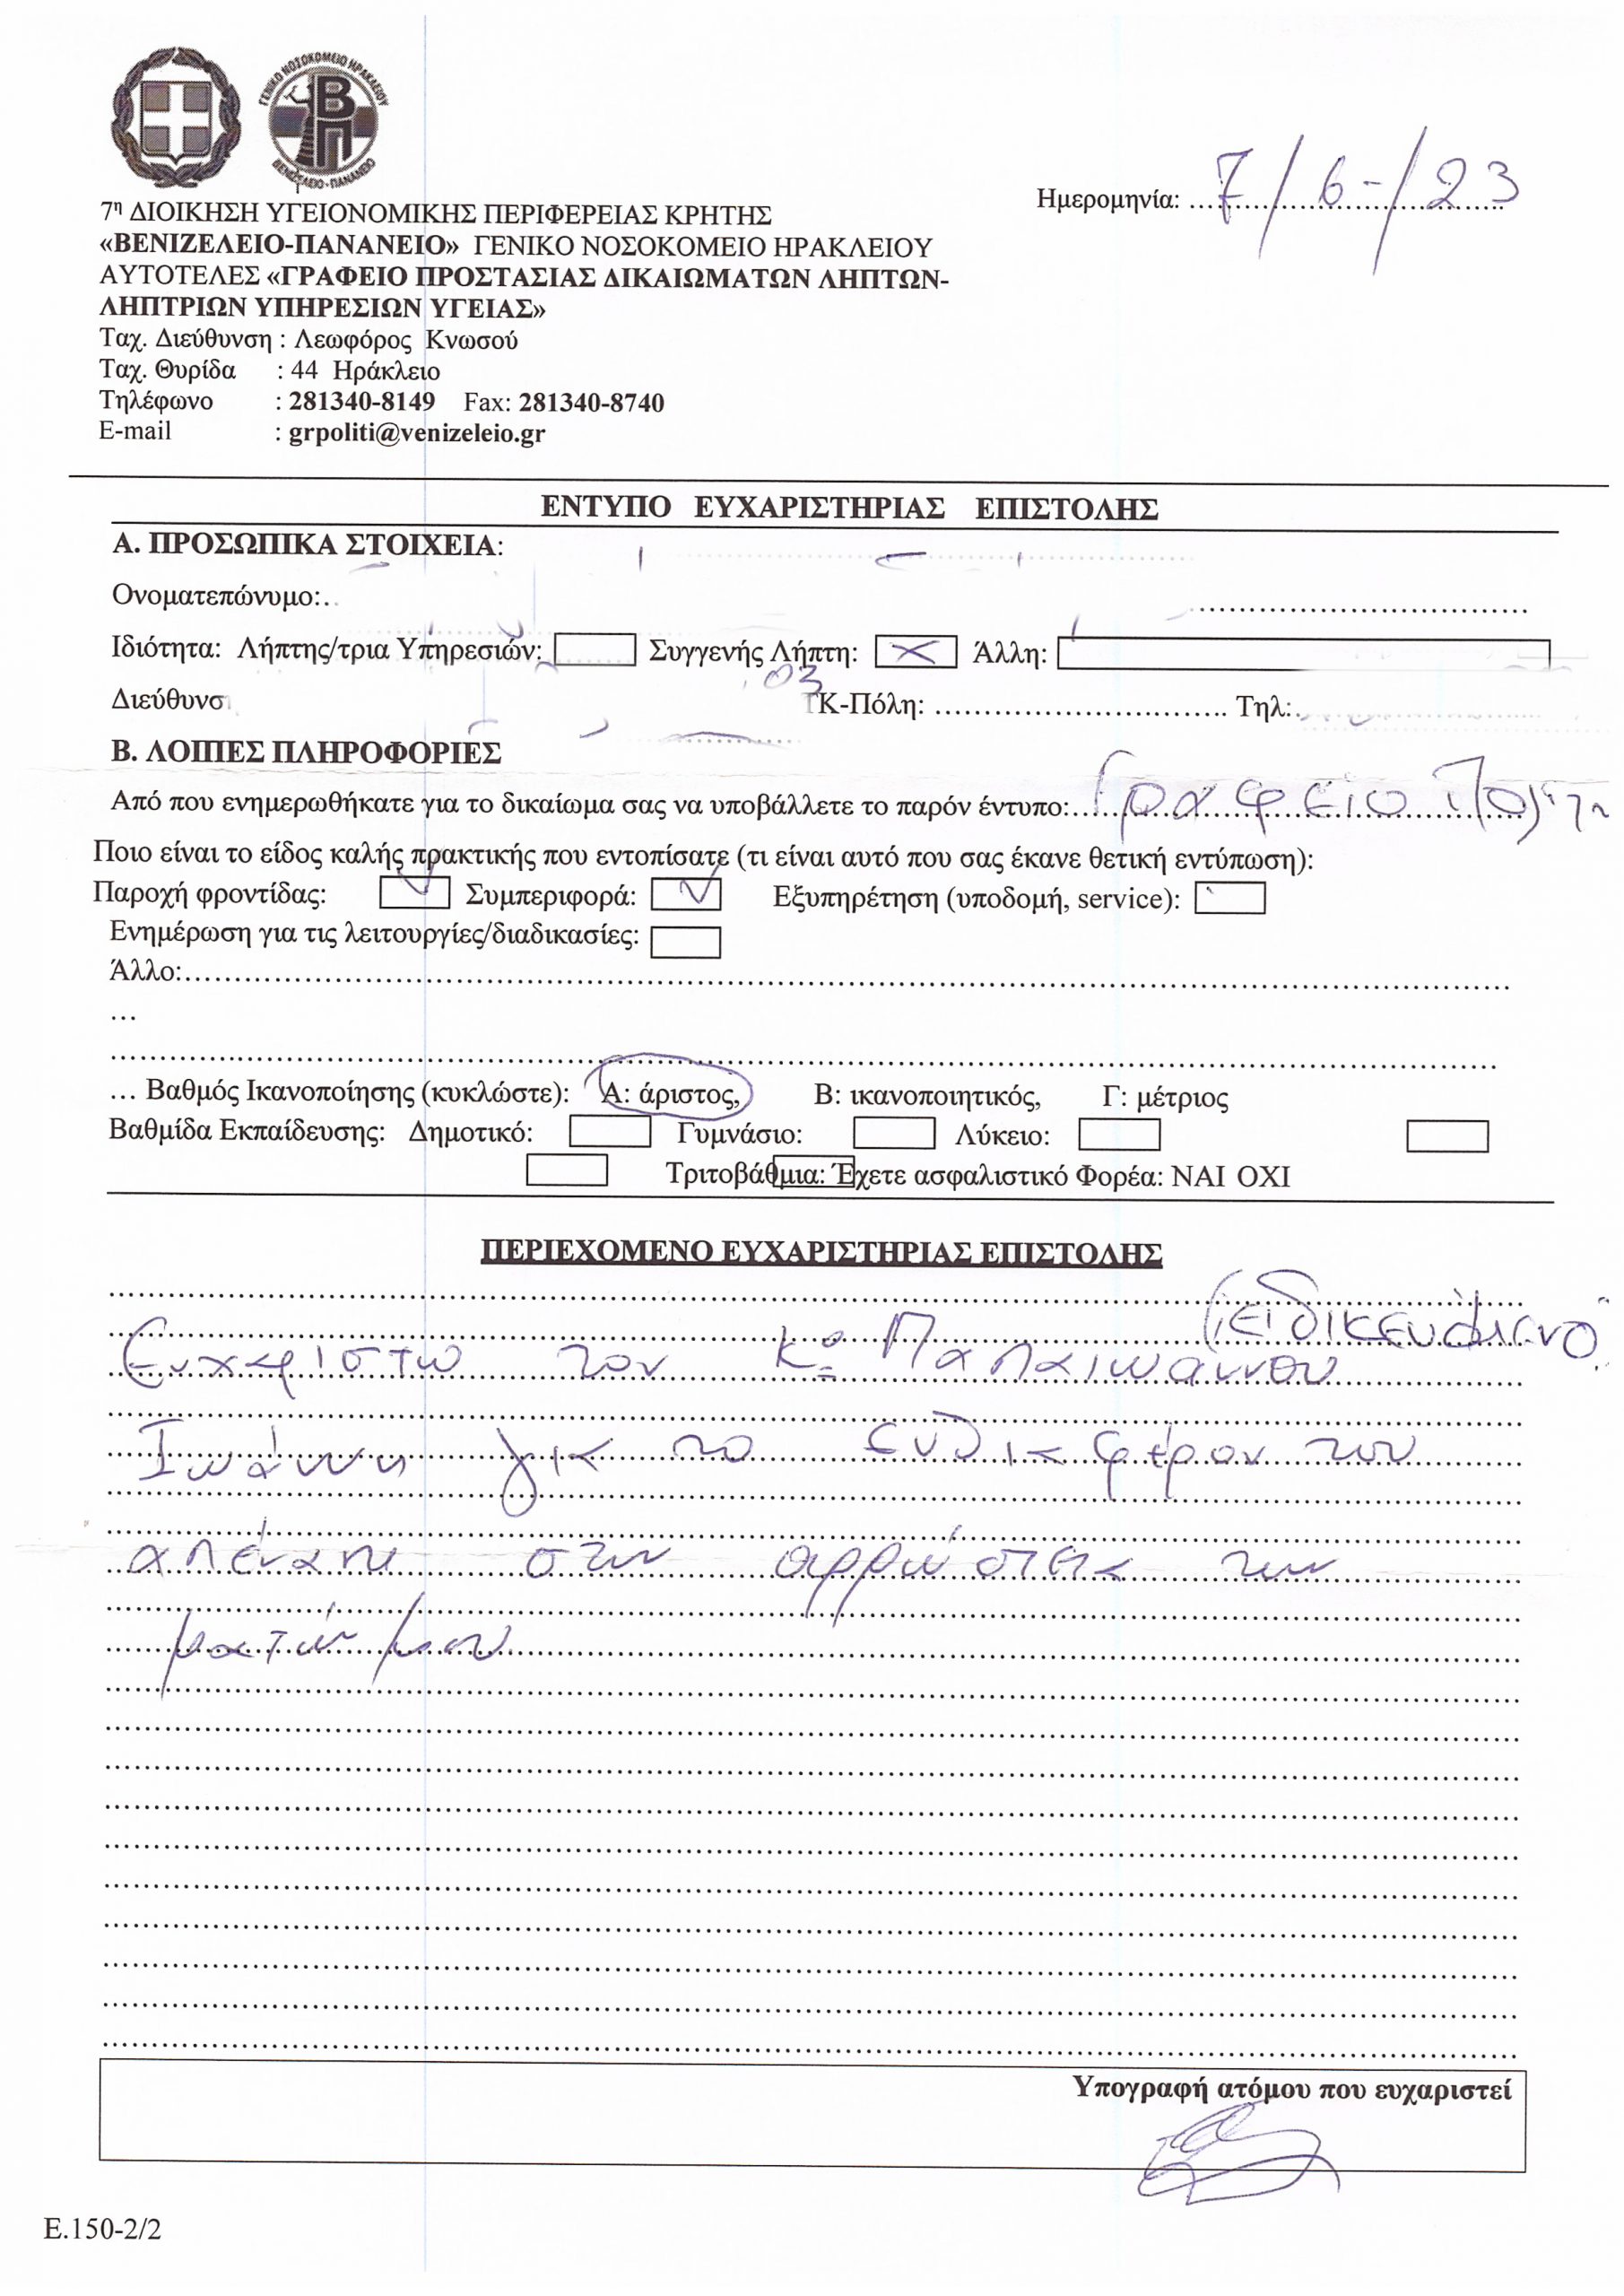 ΓΕΝΙΚΟ ΝΟΣΟΚΟΜΕΙΟ ΗΡΑΚΛΕΙΟΥ
ΒΠ
ΒΕΝΙΖΕΛΕΙΟ-ΠΑΝΑΝΕΙΟ
Ημερομηνία: 7/6-/23
7η ΔΙΟΙΚΗΣΗ ΥΓΕΙΟΝΟΜΙΚΗΣ ΠΕΡΙΦΕΡΕΙΑΣ ΚΡΗΤΗΣ
«ΒΕΝΙΖΕΛΕΙΟ-ΠΑΝΑΝΕΙΟ» ΓΕΝΙΚΟ ΝΟΣΟΚΟΜΕΙΟ ΗΡΑΚΛΕΙΟΥ
ΑΥΤΟΤΕΛΕΣ «ΓΡΑΦΕΙΟ ΠΡΟΣΤΑΣΙΑΣ ΔΙΚΑΙΩΜΑΤΩΝ ΛΗΠΤΩΝ-
ΛΗΠΤΡΙΩΝ ΥΠΗΡΕΣΙΩΝ ΥΓΕΙΑΣ»
Ταχ. Διεύθυνση : Λεωφόρος Κνωσού
Ταχ. Θυρίδα : 44 Ηράκλειο
Τηλέφωνο : 281340-8149 Fax: 281340-8740
E-mail : grpoliti@venizeleio.gr
ΕΝΤΥΠΟ ΕΥΧΑΡΙΣΤΗΡΙΑΣ ΕΠΙΣΤΟΛΗΣ
Α. ΠΡΟΣΩΠΙΚΑ ΣΤΟΙΧΕΙΑ:
Ονοματεπώνυμο:
Ιδιότητα: Λήπτης/τρια Υπηρεσιών: Συγγενής Λήπτη: Άλλη:
Διεύθυνσ ΤΚ-Πόλη: Τηλ:
Β. ΛΟΙΠΕΣ ΠΛΗΡΟΦΟΡΙΕΣ
Από που ενημερωθήκατε για το δικαίωμα σας να υποβάλλετε το παρόν έντυπο: Γραφείο
Ποιο είναι το είδος καλής πρακτικής που εντοπίσατε (τι είναι αυτό που σας έκανε θετική εντύπωση):
Παροχή φροντίδας: Συμπεριφορά: Εξυπηρέτηση (υποδομή, service):
Ενημέρωση για τις λειτουργίες/διαδικασίες:
Άλλο:
... Βαθμός Ικανοποίησης (κυκλώστε): Α: άριστος, Β: ικανοποιητικός, Γ: μέτριος
Βαθμίδα Εκπαίδευσης: Δημοτικό: Γυμνάσιο: Λύκειο:
Τριτοβάθμια: Έχετε ασφαλιστικό Φορέα: ΝΑΙ ΟΧΙ
ΠΕΡΙΕΧΟΜΕΝΟ ΕΥΧΑΡΙΣΤΗΡΙΑΣ ΕΠΙΣΤΟΛΗΣ
(ειδικευόμενο
Ευχαριστώ τον κο Παπαιωάννου
Ιωάννη για το ενδιαφέρον του
απέναντι στην αρρώστεια των
ματιών μου
Υπογραφή ατόμου που ευχαριστεί
Ε.150-2/2